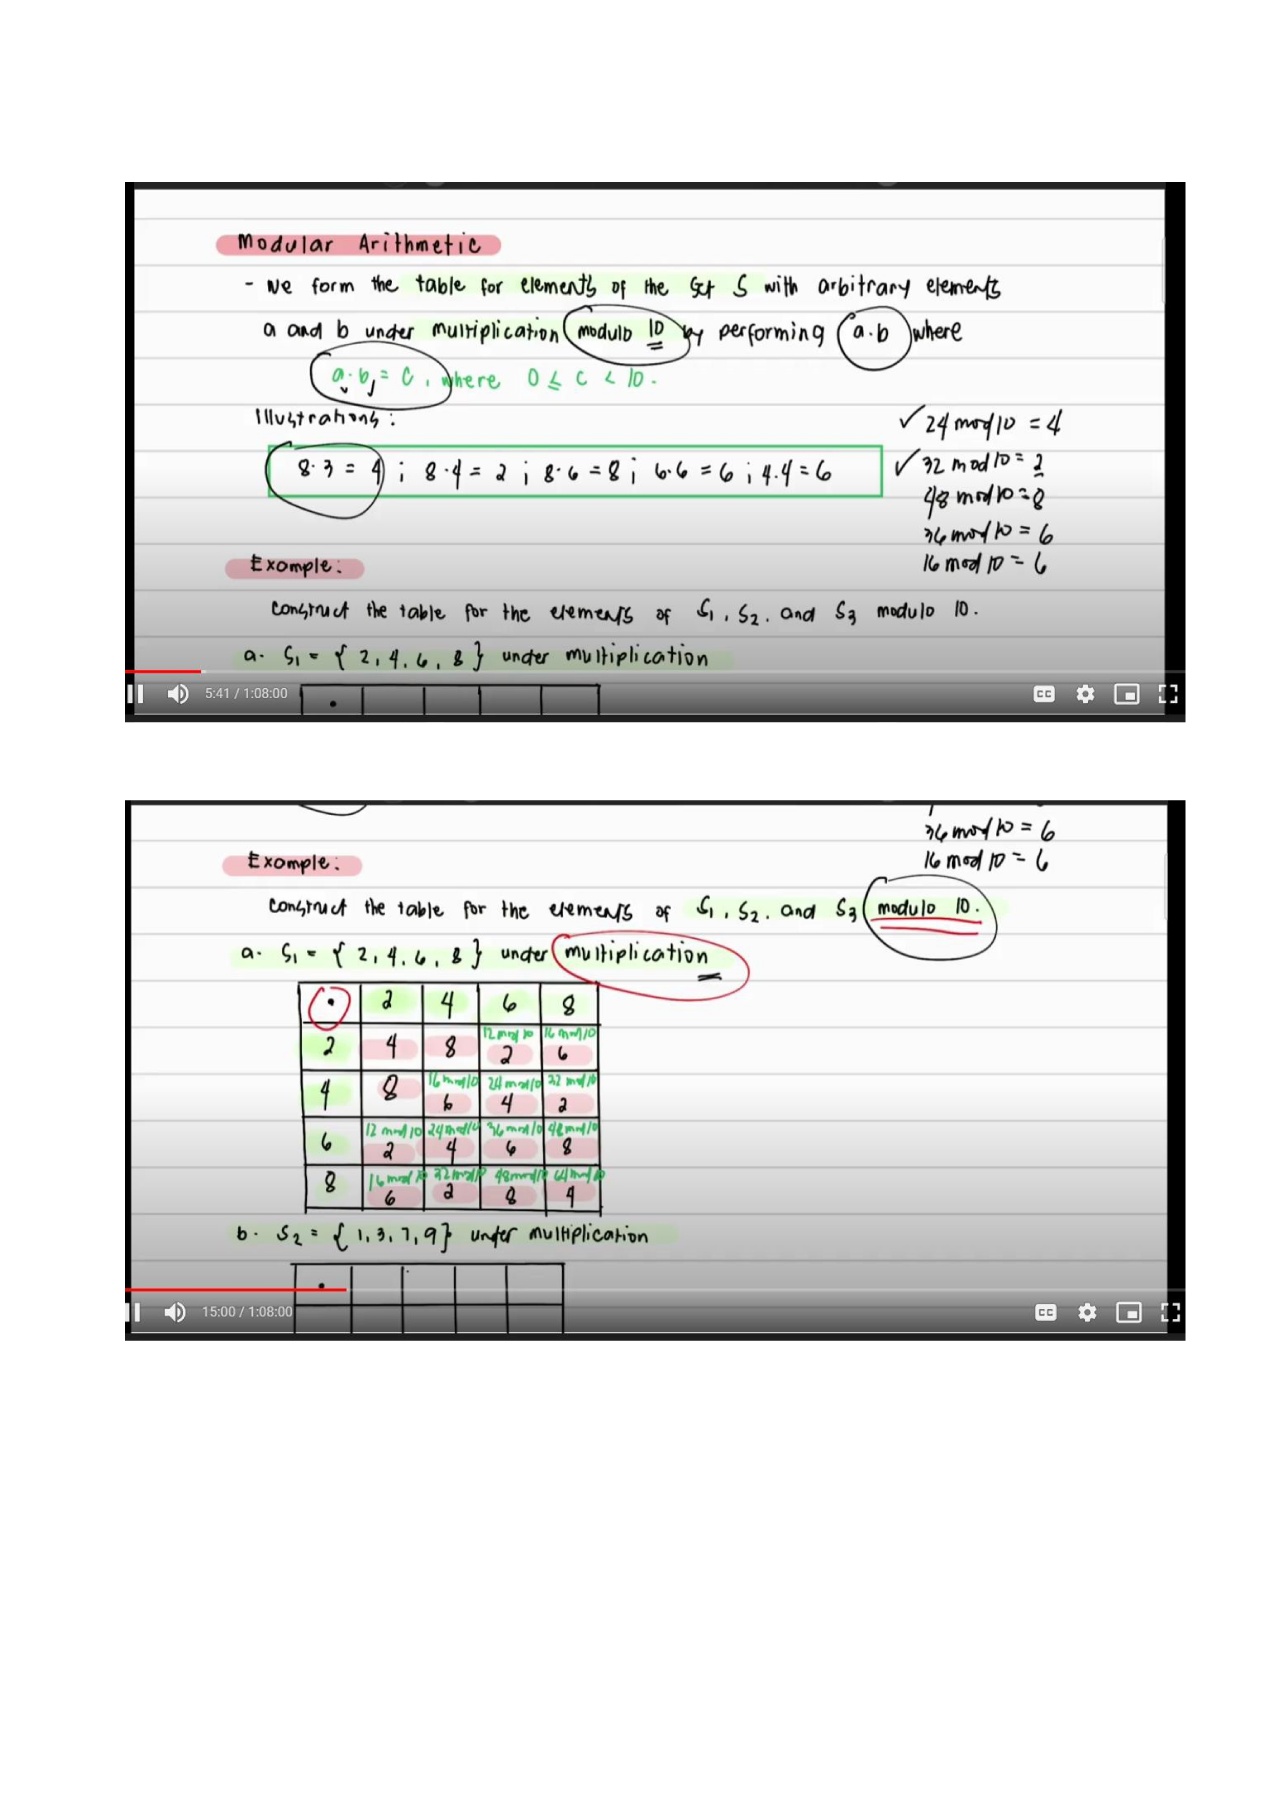 Modular Arithmetic
- We form the table for elements of the set S with arbitrary elements
a and b under multiplication modulo 10 by performing a·b where
a·b = c, where 0 ≤ c < 10.
Illustrations:
8·3 = 4 ; 8·4 = 2 ; 8·6 = 8 ; 6·6 = 6 ; 4·4 = 6
✓ 24 mod 10 = 4
✓ 32 mod 10 = 2
48 mod 10 = 8
36 mod 10 = 6
16 mod 10 = 6
Example:
Construct the table for the elements of S1, S2, and S3 modulo 10.
a. S1 = { 2, 4, 6, 8 } under multiplication
·
5:41 / 1:08:00
CC
36 mod 10 = 6
16 mod 10 = 6
Example:
Construct the table for the elements of S1, S2, and S3 modulo 10.
a. S1 = { 2, 4, 6, 8 } under multiplication
· 2 4 6 8
12 mod 10 16 mod 10
2 4 8 2 6
16 mod 10 24 mod 10 32 mod 10
4 8 6 4 2
12 mod 10 24 mod 10 36 mod 10 48 mod 10
6 2 4 6 8
16 mod 10 32 mod 10 48 mod 10 64 mod 10
8 6 2 8 4
b. S2 = { 1, 3, 7, 9 } under multiplication
·
15:00 / 1:08:00
CC